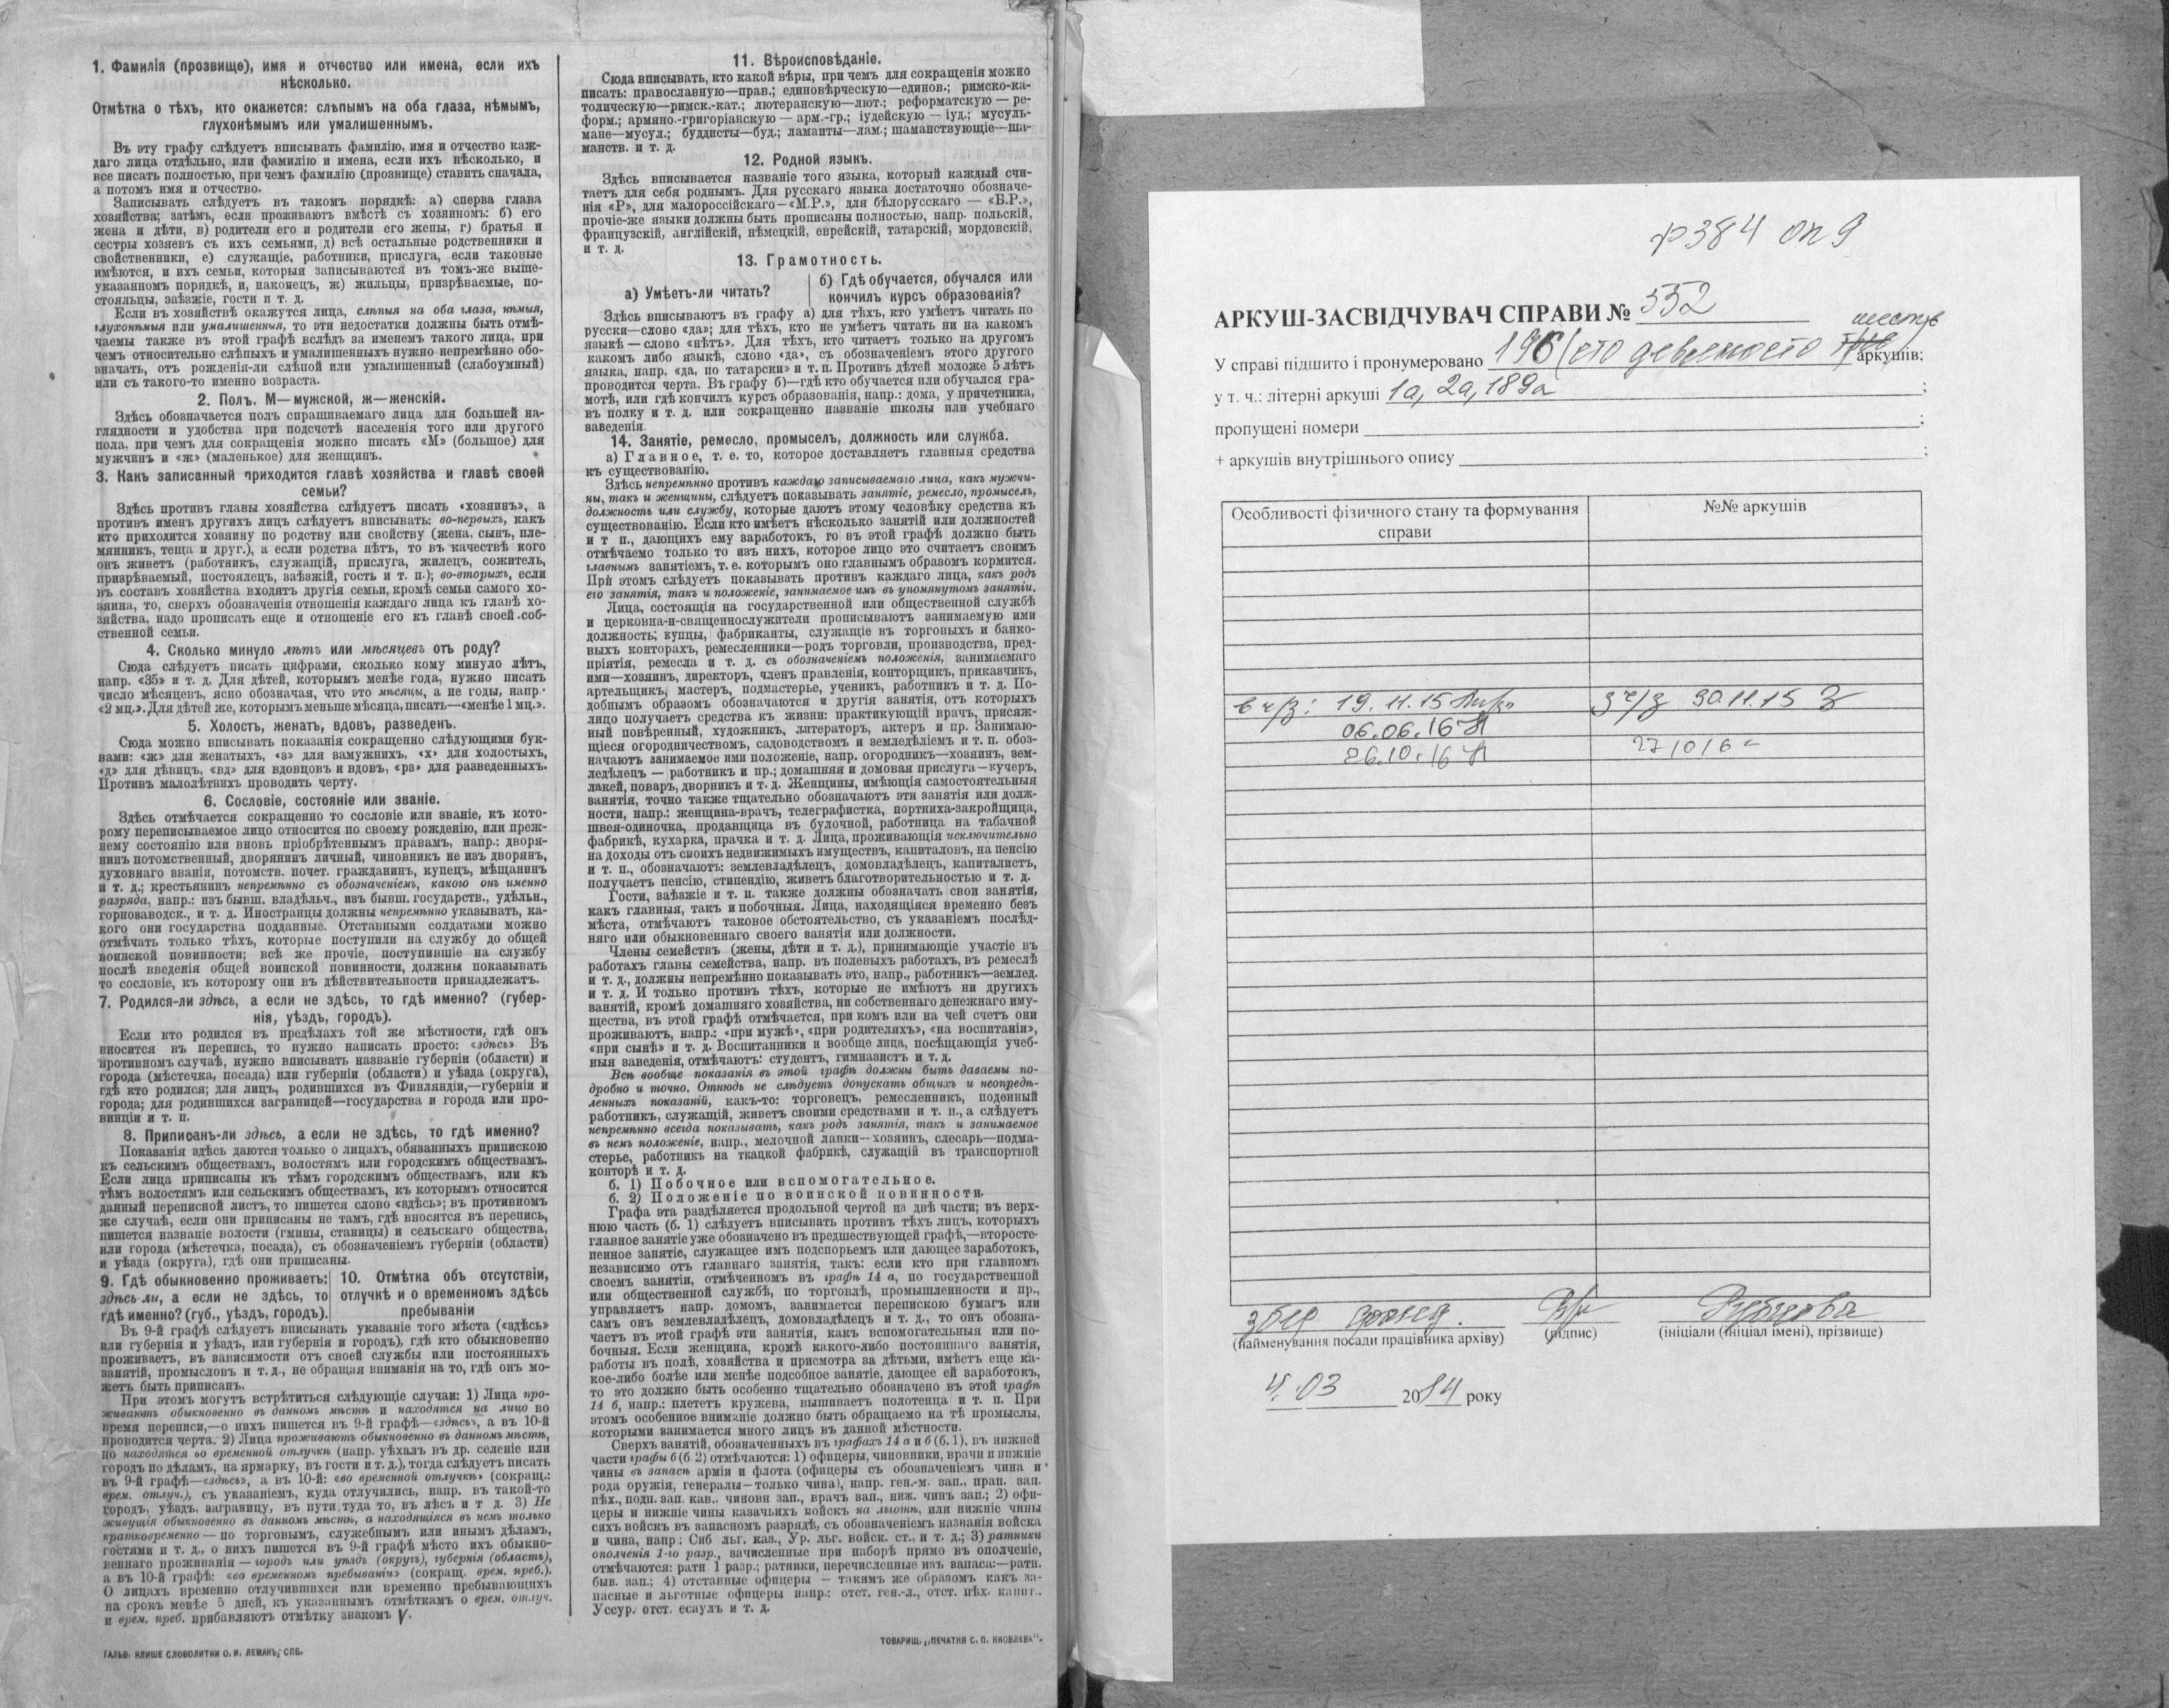 1. Фамилія (прозвище), имя и отчество или имена, если ихъ
нѣсколько.
Отмѣтка о тѣхъ, кто окажется: слѣпымъ на оба глаза, нѣмымъ,
глухонѣмымъ или умалишеннымъ.
Въ эту графу слѣдуетъ вписывать фамилію, имя и отчество каж-
даго лица отдѣльно, или фамилію и имена, если ихъ нѣсколько, и
все писать полностью, при чемъ фамилію (прозвище) ставить сначала,
а потомъ имя и отчество.
Записывать слѣдуетъ въ такомъ порядкѣ: а) сперва глава
хозяйства; затѣмъ, если проживаютъ вмѣстѣ съ хозяиномъ: б) его
жена и дѣти, в) родители его и родители его жены, г) братья и
сестры хозяевъ съ ихъ семьями, д) всѣ остальные родственники и
свойственники, е) служащіе, работники, прислуга, если таковые
имѣются, и ихъ семьи, которыя записываются въ томъ-же выше-
указанномъ порядкѣ, и, наконецъ, ж) жильцы, призрѣваемые, по-
стояльцы, заѣзжіе, гости и т. д.
Если въ хозяйствѣ окажутся лица, слѣпыя на оба глаза, нѣмыя,
глухонѣмыя или умалишенныя, то эти недостатки должны быть отмѣ-
чаемы также въ этой графѣ вслѣдъ за именемъ такого лица, при
чемъ относительно слѣпыхъ и умалишенныхъ нужно непремѣнно обо-
значать, отъ рожденія-ли слѣпой или умалишенный (слабоумный)
или съ такого-то именно возраста.
2. Полъ. М—мужской, ж—женскій.
Здѣсь обозначается полъ спрашиваемаго лица для большей на-
глядности и удобства при подсчетѣ населенія того или другого
пола, при чемъ для сокращенія можно писать «М» (большое) для
мужчинъ и «ж» (маленькое) для женщинъ.
3. Какъ записанный приходится главѣ хозяйства и главѣ своей
семьи?
Здѣсь противъ главы хозяйства слѣдуетъ писать «хозяинъ», а
противъ именъ другихъ лицъ слѣдуетъ вписывать: во-первыхъ, какъ
кто приходится хозяину по родству или свойству (жена, сынъ, пле-
мянникъ, теща и друг.), а если родства нѣтъ, то въ качествѣ кого
онъ живетъ (работникъ, служащій, прислуга, жилецъ, сожитель,
призрѣваемый, постоялецъ, заѣзжій, гость и т. п.); во-вторыхъ, если
въ составъ хозяйства входятъ другія семьи, кромѣ семьи самого хо-
зяина, то, сверхъ обозначенія отношенія каждаго лица къ главѣ хо-
зяйства, надо прописать еще и отношеніе его къ главѣ своей соб-
ственной семьи.
4. Сколько минуло лѣтъ или мѣсяцевъ отъ роду?
Сюда слѣдуетъ писать цифрами, сколько кому минуло лѣтъ,
напр. «35» и т. д. Для дѣтей, которымъ менѣе года, нужно писать
число мѣсяцевъ, ясно обозначая, что это мѣсяцы, а не годы, напр.
«2 мц.». Для дѣтей же, которымъ меньше мѣсяца, писать—«менѣе 1 мц.».
5. Холостъ, женатъ, вдовъ, разведенъ.
Сюда можно вписывать показанія сокращенно слѣдующими бук-
вами: «ж» для женатыхъ, «з» для замужнихъ, «х» для холостыхъ,
«д» для дѣвицъ, «вд» для вдовцовъ и вдовъ, «рз» для разведенныхъ.
Противъ малолѣтнихъ проводить черту.
6. Сословіе, состояніе или званіе.
Здѣсь отмѣчается сокращенно то сословіе или званіе, къ кото-
рому переписываемое лицо относится по своему рожденію, или преж-
нему состоянію или вновь пріобрѣтеннымъ правамъ, напр.: дворя-
нинъ потомственный, дворянинъ личный, чиновникъ не изъ дворянъ,
духовнаго званія, потомств. почет. гражданинъ, купецъ, мѣщанинъ
и т. д.; крестьянинъ непремѣнно съ обозначеніемъ, какого онъ именно
разряда, напр.: изъ бывш. владѣльч., изъ бывш. государств., удѣльн.,
горнозаводск., и т. д. Иностранцы должны непремѣнно указывать, ка-
кого они государства подданные. Отставными солдатами можно
отмѣчать только тѣхъ, которые поступили на службу до общей
воинской повинности; всѣ же прочіе, поступившіе на службу
послѣ введенія общей воинской повинности, должны показывать
то сословіе, къ которому они въ дѣйствительности принадлежатъ.
7. Родился-ли здѣсь, а если не здѣсь, то гдѣ именно? (губер-
нія, уѣздъ, городъ).
Если кто родился въ предѣлахъ той же мѣстности, гдѣ онъ
вносится въ перепись, то нужно написать просто: «здѣсь» Въ
противномъ случаѣ, нужно вписывать названіе губерніи (области) и
города (мѣстечка, посада) или губерніи (области) и уѣзда (округа),
гдѣ кто родился; для лицъ, родившихся въ Финляндіи,—губерніи и
города; для родившихся заграницей—государства и города или про-
винціи и т. п.
8. Приписанъ-ли здѣсь, а если не здѣсь, то гдѣ именно?
Показанія здѣсь даются только о лицахъ, обязанныхъ припискою
къ сельскимъ обществамъ, волостямъ или городскимъ обществамъ.
Если лица приписаны къ тѣмъ городскимъ обществамъ, или къ
тѣмъ волостямъ или сельскимъ обществамъ, къ которымъ относится
данный переписной листъ, то пишется слово «здѣсь»; въ противномъ
же случаѣ, если они приписаны не тамъ, гдѣ вносятся въ перепись,
пишется названіе волости (гмины, станицы) и сельскаго общества,
или города (мѣстечка, посада), съ обозначеніемъ губерніи (области)
и уѣзда (округа), гдѣ они приписаны.
9. Гдѣ обыкновенно проживаетъ:
здѣсь-ли, а если не здѣсь, то
гдѣ именно? (губ., уѣздъ, городъ).
10. Отмѣтка объ отсутствіи,
отлучкѣ и о временномъ здѣсь
пребываніи
Въ 9-й графѣ слѣдуетъ вписывать указаніе того мѣста («здѣсь»
или губернія и уѣздъ, или губернія и городъ), гдѣ кто обыкновенно
проживаетъ, въ зависимости отъ своей службы или постоянныхъ
занятій, промысловъ и т. д., не обращая вниманія на то, гдѣ онъ мо-
жетъ быть приписанъ.
При этомъ могутъ встрѣтиться слѣдующіе случаи: 1) Лица про-
живаютъ обыкновенно въ данномъ мѣстѣ и находятся на лицо во
время переписи,—о нихъ пишется въ 9-й графѣ—«здѣсь», а въ 10-й
проводится черта. 2) Лица проживаютъ обыкновенно въ данномъ мѣстѣ,
но находятся во временной отлучкѣ (напр. уѣхалъ въ др. селеніе или
городъ по дѣламъ, на ярмарку, въ гости и т. д.), тогда слѣдуетъ писать
въ 9-й графѣ—«здѣсь», а въ 10-й: «во временной отлучкѣ» (сокращ.:
врем. отлуч.), съ указаніемъ, куда отлучились, напр. въ такой-то
городъ, уѣздъ, заграницу, въ пути туда то, въ лѣсъ и т д. 3) Не
живущія обыкновенно въ данномъ мѣстѣ, а находящіяся въ немъ только
кратковременно — по торговымъ, служебнымъ или инымъ дѣламъ,
гостями и т. д., о нихъ пишется въ 9-й графѣ мѣсто ихъ обыкно-
веннаго проживанія — городъ или уѣздъ (округъ), губернія (область),
а въ 10-й графѣ: «во временномъ пребываніи» (сокращ. врем. преб.).
О лицахъ временно отлучившихся или временно пребывающихъ
на срокъ менѣе 5 дней, къ указаннымъ отмѣткамъ о врем. отлуч.
и врем. преб. прибавляютъ отмѣтку знакомъ V.
ГАЛЬВ. КЛИШЕ СЛОВОЛИТНИ О. И. ЛЕМАНЪ, СПБ.
11. Вѣроисповѣданіе.
Сюда вписывать, кто какой вѣры, при чемъ для сокращенія можно
писать: православную—прав.; единовѣрческую—единов.; римско-ка-
толическую—римск.-кат.; лютеранскую—лют.; реформатскую — ре-
форм.; армяно.-григоріанскую — арм.-гр.; іудейскую — іуд.; мусуль-
мане—мусул.; буддисты—буд.; ламаиты—лам.; шаманствующіе—ша-
манств. и т. д.
12. Родной языкъ.
Здѣсь вписывается названіе того языка, который каждый счи-
таетъ для себя роднымъ. Для русскаго языка достаточно обозначе-
нія «Р», для малороссійскаго—«М.Р.», для бѣлорусскаго — «Б.Р.»,
прочіе-же языки должны быть прописаны полностью, напр. польскій,
французскій, англійскій, нѣмецкій, еврейскій, татарскій, мордовскій,
и т. д.
13. Грамотность.
а) Умѣетъ-ли читать?
б) Гдѣ обучается, обучался или
кончилъ курсъ образованія?
Здѣсь вписываютъ въ графу а) для тѣхъ, кто умѣетъ читать по
русски—слово «да»; для тѣхъ, кто не умѣетъ читать ни на какомъ
языкѣ — слово «нѣтъ». Для тѣхъ, кто читаетъ только на другомъ
какомъ либо языкѣ, слово «да», съ обозначеніемъ этого другого
языка, напр. «да, по татарски» и т. п. Противъ дѣтей моложе 5 лѣтъ
проводится черта. Въ графу б)—гдѣ кто обучается или обучался гра-
мотѣ, или гдѣ кончилъ курсъ образованія, напр.: дома, у причетника,
въ полку и т. д. или сокращенно названіе школы или учебнаго
заведенія.
14. Занятіе, ремесло, промыселъ, должность или служба.
а) Главное, т. е. то, которое доставляетъ главныя средства
къ существованію.
Здѣсь непремѣнно противъ каждаго записываемаго лица, какъ мужчи-
ны, такъ и женщины, слѣдуетъ показывать занятіе, ремесло, промыселъ,
должность или службу, которые даютъ этому человѣку средства къ
существованію. Если кто имѣетъ нѣсколько занятій или должностей
и т п., дающихъ ему заработокъ, то въ этой графѣ должно быть
отмѣчаемо только то изъ нихъ, которое лицо это считаетъ своимъ
главнымъ занятіемъ, т. е. которымъ оно главнымъ образомъ кормится.
При этомъ слѣдуетъ показывать противъ каждаго лица, какъ родъ
его занятія, такъ и положеніе, занимаемое имъ въ упомянутомъ занятіи.
Лица, состоящія на государственной или общественной службѣ
и церковна-и-священнослужители прописываютъ занимаемую ими
должность; купцы, фабриканты, служащіе въ торговыхъ и банко-
выхъ конторахъ, ремесленники—родъ торговли, производства, пред-
пріятія, ремесла и т. д. съ обозначеніемъ положенія, занимаемаго
ими—хозяинъ, директоръ, членъ правленія, конторщикъ, приказчикъ,
артельщикъ, мастеръ, подмастерье, ученикъ, работникъ и т. д. По-
добнымъ образомъ обозначаются и другія занятія, отъ которыхъ
лицо получаетъ средства къ жизни: практикующій врачъ, присяж-
ный повѣренный, художникъ, литераторъ, актеръ и пр. Занимаю-
щіеся огородничествомъ, садоводствомъ и земледѣліемъ и т. п. обоз-
начаютъ занимаемое ими положеніе, напр. огородникъ—хозяинъ, зем-
ледѣлецъ — работникъ и пр.; домашняя и домовая прислуга—кучеръ,
лакей, поваръ, дворникъ и т. д. Женщины, имѣющія самостоятельныя
занятія, точно также тщательно обозначаютъ эти занятія или долж-
ности, напр.: женщина-врачъ, телеграфистка, портниха-закройщица,
швея-одиночка, продавщица въ булочной, работница на табачной
фабрикѣ, кухарка, прачка и т. д. Лица, проживающія исключительно
на доходы отъ своихъ недвижимыхъ имуществъ, капиталовъ, на пенсію
и т. п., обозначаютъ: землевладѣлецъ, домовладѣлецъ, капиталистъ,
получаетъ пенсію, стипендію, живетъ благотворительностью и т. д.
Гости, заѣзжіе и т. п. также должны обозначать свои занятія,
какъ главныя, такъ и побочныя. Лица, находящіяся временно безъ
мѣста, отмѣчаютъ таковое обстоятельство, съ указаніемъ послѣд-
няго или обыкновеннаго своего занятія или должности.
Члены семействъ (жены, дѣти и т. д.), принимающіе участіе въ
работахъ главы семейства, напр. въ полевыхъ работахъ, въ ремеслѣ
и т. д., должны непремѣнно показывать это, напр., работникъ—землед.
и т. д. И только противъ тѣхъ, которые не имѣютъ ни другихъ
занятій, кромѣ домашняго хозяйства, ни собственнаго денежнаго иму-
щества, въ этой графѣ отмѣчается, при комъ или на чей счетъ они
проживаютъ, напр.: «при мужѣ», «при родителяхъ», «на воспитаніи»,
«при сынѣ» и т. д. Воспитанники и вообще лица, посѣщающія учеб-
ныя заведенія, отмѣчаютъ: студентъ, гимназистъ и т. д.
Всѣ вообще показанія въ этой графѣ должны быть даваемы по-
дробно и точно. Отнюдь не слѣдуетъ допускать общихъ и неопредѣ-
ленныхъ показаній, какъ-то: торговецъ, ремесленникъ, поденный
работникъ, служащій, живетъ своими средствами и т. п., а слѣдуетъ
непремѣнно всегда показывать, какъ родъ занятія, такъ и занимаемое
въ немъ положеніе, напр., мелочной лавки—хозяинъ, слесарь—подма-
стерье, работникъ на ткацкой фабрикѣ, служащій въ транспортной
конторѣ и т. д.
б. 1) Побочное или вспомогательное.
б. 2) Положеніе по воинской повинности.
Графа эта раздѣляется продольной чертой на двѣ части; въ верх-
нюю часть (б. 1) слѣдуетъ вписывать противъ тѣхъ лицъ, которыхъ
главное занятіе уже обозначено въ предшествующей графѣ,—второсте-
пенное занятіе, служащее имъ подспорьемъ или дающее заработокъ,
независимо отъ главнаго занятія, такъ: если кто при главномъ
своемъ занятіи, отмѣченномъ въ графѣ 14 а, по государственной
или общественной службѣ, по торговлѣ, промышленности и пр.,
управляетъ напр. домомъ, занимается перепискою бумагъ или
самъ онъ землевладѣлецъ, домовладѣлецъ и т. д., то онъ обозна-
чаетъ въ этой графѣ эти занятія, какъ вспомогательныя или по-
бочныя. Если женщина, кромѣ какого-либо постояннаго занятія,
работы въ полѣ, хозяйства и присмотра за дѣтьми, имѣетъ еще ка-
кое-либо болѣе или менѣе подсобное занятіе, дающее ей заработокъ,
то это должно быть особенно тщательно обозначено въ этой графѣ
14 б, напр.: плететъ кружева, вышиваетъ полотенца и т. п. При
этомъ особенное вниманіе должно быть обращаемо на тѣ промыслы,
которыми занимается много лицъ въ данной мѣстности.
Сверхъ занятій, обозначенныхъ въ графахъ 14 а и б (б. 1), въ нижней
части графы б (б 2) отмѣчаются: 1) офицеры, чиновники, врачи и нижніе
чины въ запасѣ арміи и флота (офицеры съ обозначеніемъ чина и
рода оружія, генералы—только чина), напр. ген.-м. зап., прап. зап.
пѣх., подп. зап. кав., чиновн зап., врачъ зап., ниж. чинъ зап.; 2) офи-
церы и нижніе чины казачьихъ войскъ на льготѣ, или нижніе чины
сихъ войскъ въ запасномъ разрядѣ, съ обозначеніемъ названія войска
и чина, напр: Сиб льг. каз., Ур. льг. войск. ст., и т. д.; 3) ратники
ополченія 1-го разр., зачисленные при наборѣ прямо въ ополченіе,
отмѣчаются: ратн 1 разр.; ратники, перечисленные изъ запаса:—ратн.
быв. зап.; 4) отставные офицеры — такимъ же образомъ какъ за-
пасные и льготные офицеры напр.: отст. ген.-л., отст. пѣх. капит.,
Уссур. отст. есаулъ и т. д.
ТОВАРИЩ. „ПЕЧАТНЯ С. П. ЯКОВЛЕВА".
р384 оп 9
АРКУШ-ЗАСВІДЧУВАЧ СПРАВИ № 552
шесть
У справі підшито і пронумеровано 196 (сто девяносто аркушів;
у т. ч.: літерні аркуші 1а, 2а, 189а ;
пропущені номери ;
+ аркушів внутрішнього опису ;
Особливості фізичного стану та формування
справи
№№ аркушів
в ч/з: 19.11.15
з ч/з 30.11.15
06.06.16
26.10.16
(найменування посади працівника архіву) (підпис) (ініціали (ініціал імені), прізвище)
4.03 2014 року